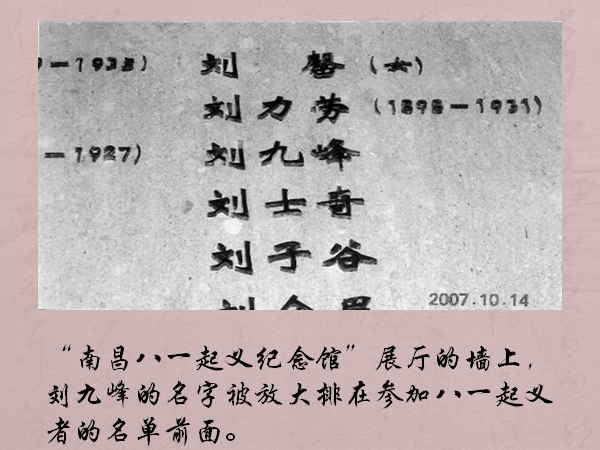 -1933)
刘 馨 (女)
刘力劳 (1898-1931)
-1927)
刘九峰
刘士奇
刘子谷
2007.10.14
“南昌八一起义纪念馆”展厅的墙上,
刘九峰的名字被放大排在参加八一起义
者的名单前面。